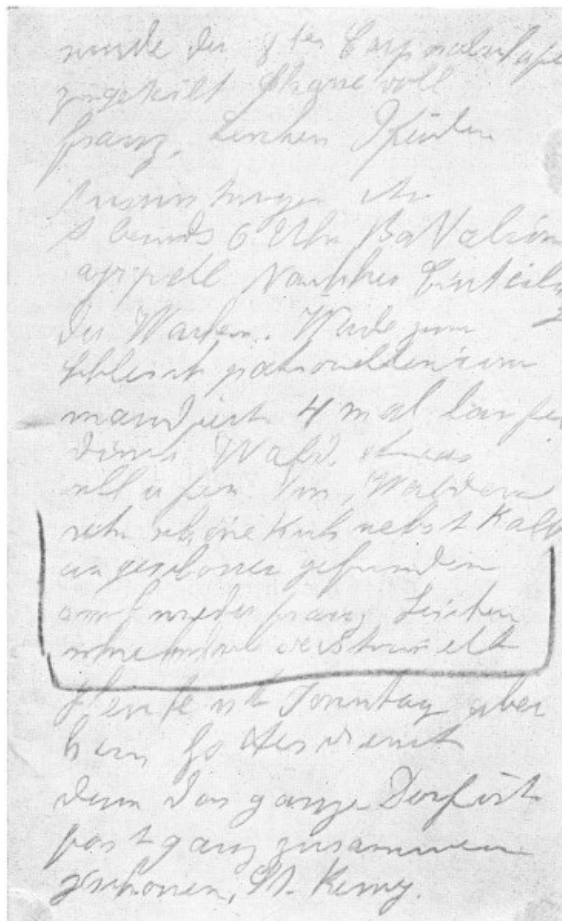 wurde der 9ten Corporalschaft
zugeteilt
franz. Leichen
Abends 6 Uhr Battalion
appell Nachher Einteil
der Wachen. Wurde zum
Schleich patrouillen com
mandiert 4 mal laufen
durch Wald, etwas
Im Walde
sehr schöne Kuh nebst Kalb
angeschossen gefunden
und wieder franz Leichen
verstümmelt
Heute ist Sonntag aber
kein Gottesdienst
denn das ganze Dorf ist
fast ganz zusammen
geschossen, St. Remy.